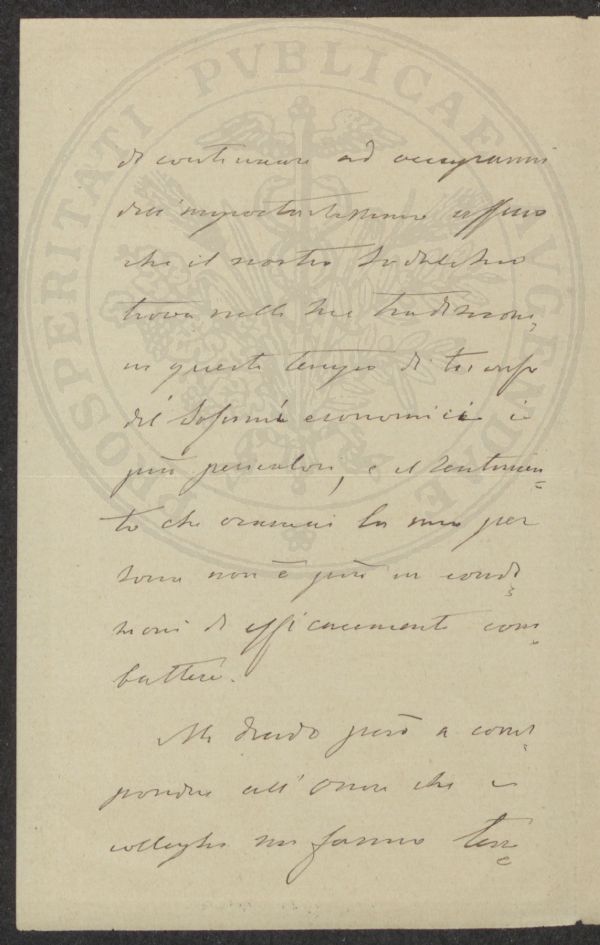 PROSPERITATI PVBLICAE AVGENDAE
di continuare ad occuparmi
dell'importantissimo ufficio
che il nostro Sodalizio
trova nelle sue tradizioni,
in questi tempi di trionfo
dei sofismi economici i
più pericolosi, e il sentimen=
to che oramai la mia per
sona non è più in condi=
zioni di efficacemente com=
battere.
Mi chiedo però a corris=
pondere all'onore che i
colleghi mi fanno